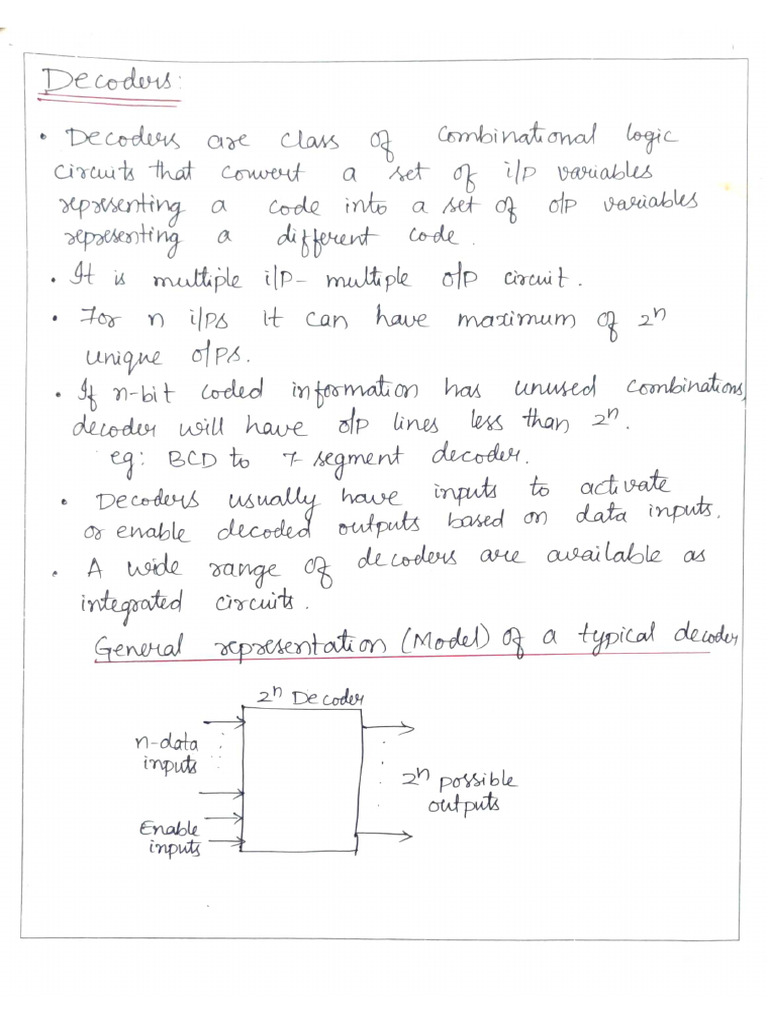 Decoders:
• Decoders are class of combinational logic
circuits that convert a set of i/p variables
representing a code into a set of o/p variables
representing a different code.
• It is multiple i/p - multiple o/p circuit.
• For n i/ps it can have maximum of 2ⁿ
unique o/ps.
• If n-bit coded information has unused combinations,
decoder will have o/p lines less than 2ⁿ.
eg: BCD to 7-segment decoder.
• Decoders usually have inputs to activate
or enable decoded outputs based on data inputs.
• A wide range of decoders are available as
integrated circuits.
General representation (Model) of a typical decoder
2ⁿ Decoder
n-data
inputs
2ⁿ possible
outputs
Enable
inputs